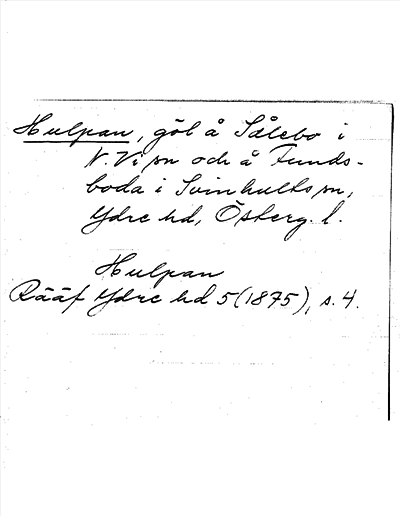 Hulpan, göl å Sålebo i
N. Vi sn och å Funds-
boda i Svinhults sn,
Ydre hd, Österg. l.
Hulpan
Rääf Ydre hd 5 (1875), s. 4.